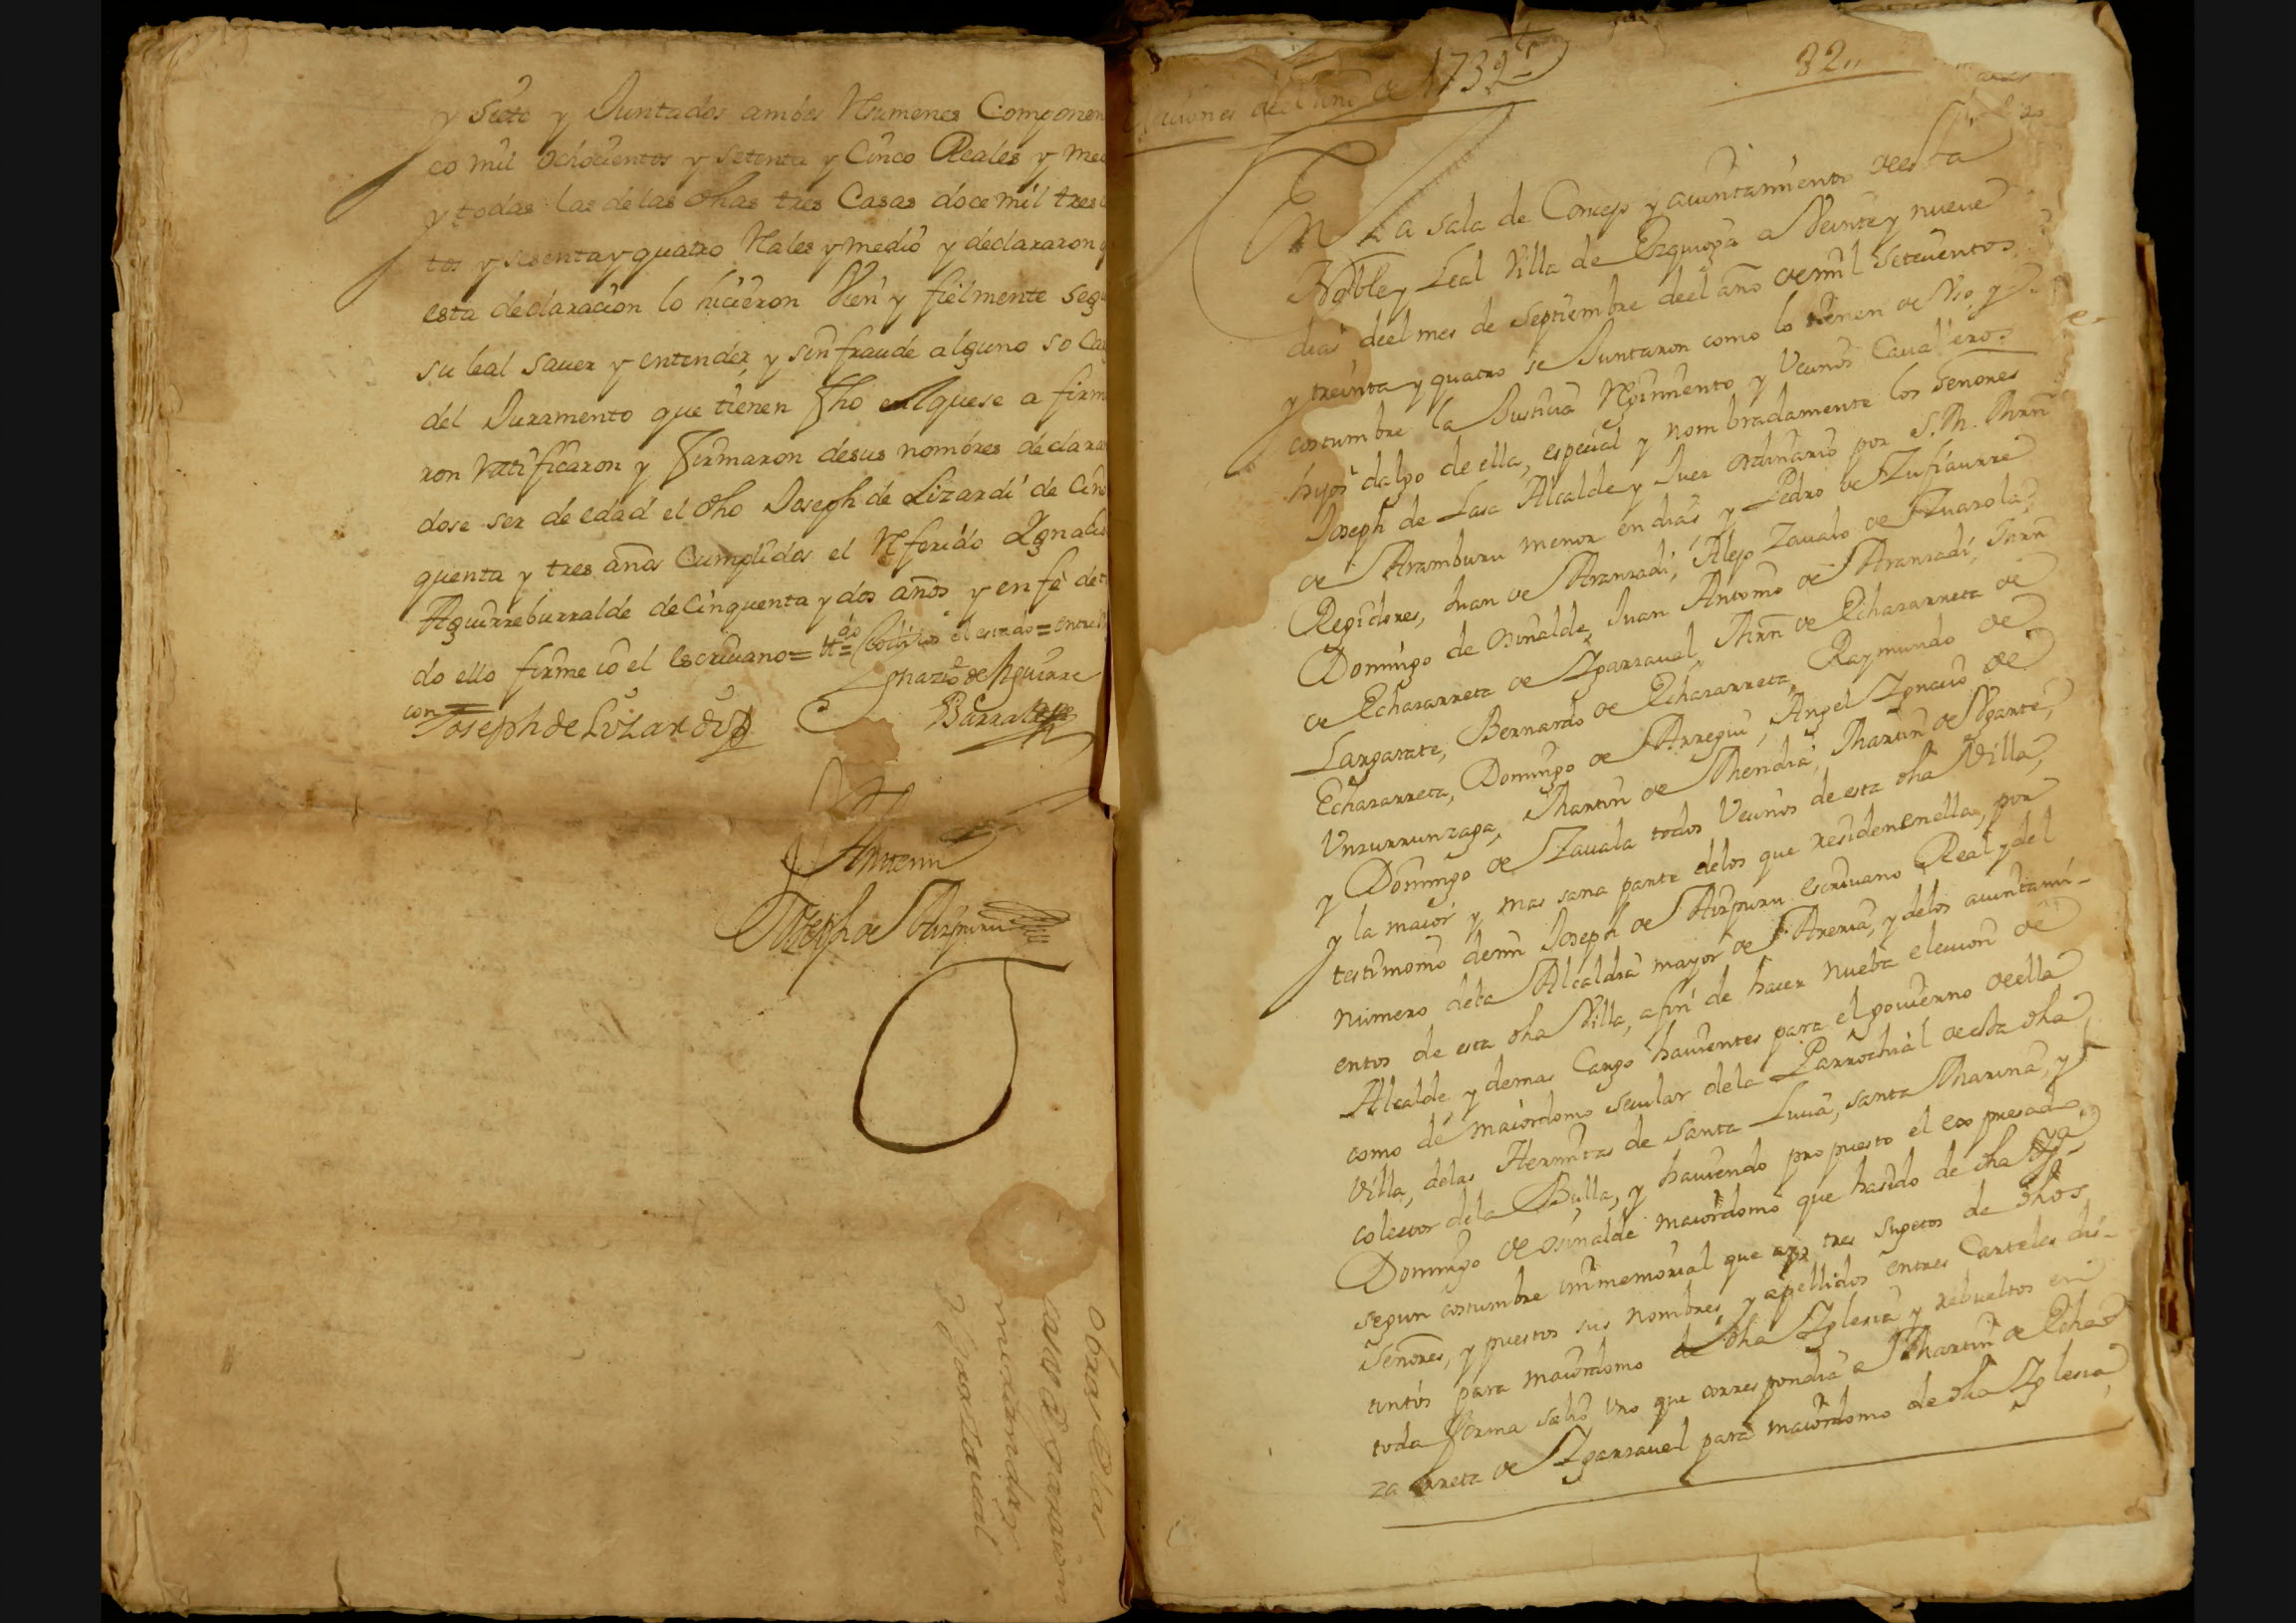 y siete y Juntados ambos Numenes Componen
co mil ochocientos y setenta y Cinco Reales y med
y todas las de las dhas tres Casas doce mil tres
tos y sesenta y quatro Rales y medio y declararon
esta declaracion lo hicieron Vien y fielmente segu
su leal saver y entender, y sin fraude alguno so Car
del Juramento que tienen fho en lquese a firm
ron Ratificaron y firmaron desus nombres declara
dose ser de edad el dho Joseph de Lizardi de Cin
quenta y tres anos Cumplidos el Referido Ignacio
Aguirreburralde de Cinquenta y dos años y en fe de
do ello firme io el escrivano= el errado=entre
con=
Joseph de Lizardi
Ignazio de Aguirre
Burralde
Ante mi
Joseph de Aizpuru
obras de las
casas
Igarzaval
del año de 1732
32,,
En La sala de Concejo y aiuntamiento de esta
Noble y Leal Villa de Ezquioga a Veinte y nueve
dias de el mes de Septiembre de el año de mil setecientos
y treinta y quatro se Juntaron como lo tienen de Vso, y
costumbre la Justicia Regimiento y Vecinos Cavalleros
hijos dalgo de ella, especial y nombradamente los Senores
Joseph de Lasa Alcalde y Juez ordinario por S. M. Mrñ
de Aramburu menor en dias y Pedro de Zufiaurre
Regidores, Juan de Aranzadi, Alejo Zavalo de Zuazola,
Domingo de Osinalde, Juan Antonio de Aranzadi, Juañ
de Echazarreta de Igarzavel, Mrñ de Echazarreta de
Largarate, Bernardo de Echazarreta, Raymundo de
Echazarreta, Domingo de Arregui, Angel Ignacio de
Vnzurrunzaga, Martin de Mendia, Martin de Ygarte,
y Domingo de Zavala todos Vecinos de esta dha Villa,
y la maior y mas sana parte delos que residen enella, por
testimonio demi Joseph de Aizpuru escrivano Real y del
numero dela Alcaldia mayor de Areria, y delos aiuntami-
entos de esta dha Villa, afin de hacer nueba eleccion de
Alcalde y demas Cargo havientes para el govierno de ella
como de maiordomo secular dela Parrochial de esta dha
Villa, delas Hermitas de Santa Lucia, santa Marina, y
colector dela Bulla, y haviendo propuesto el expresado
Domingo de Osinalde maiordomo que hasido de dha Yga
segun costumbre immemorial que tres sugetos de dhos
Señores, y puestos sus nombres, y apellidos entres Carteles dis-
tintos para maiordomo de dha Iglesia y rebueltos en
toda forma salio Vno que correspondia a Martin de Echa-
zarreta de Igarzavel para maiordomo de dha Iglesia